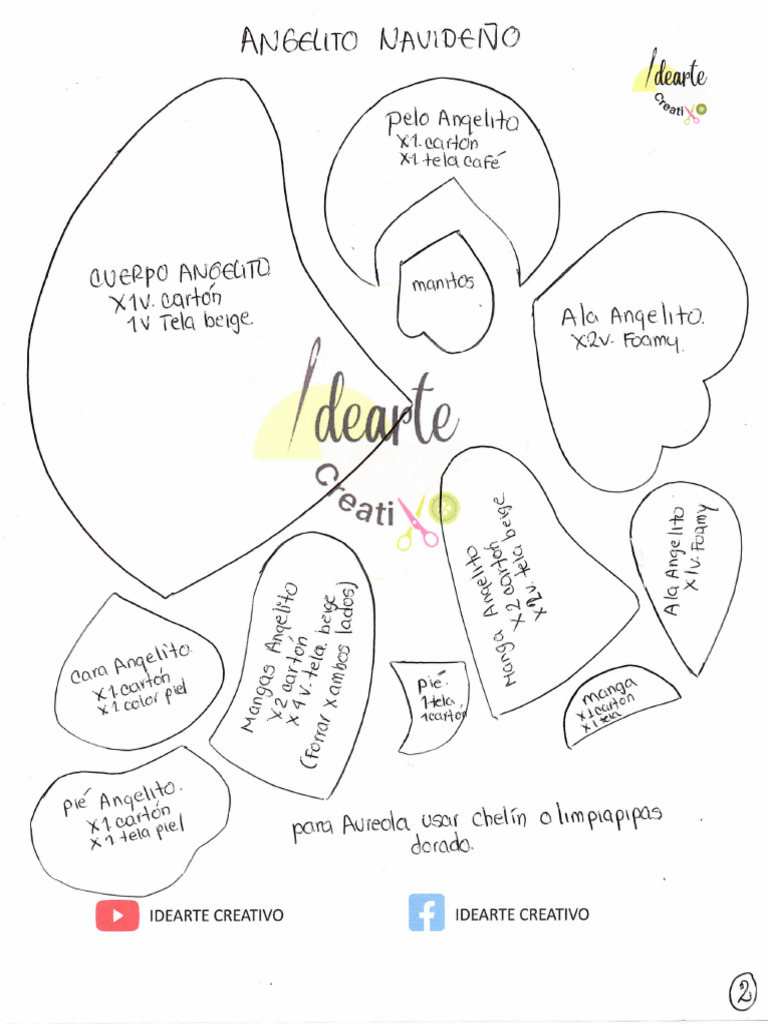 ANGELITO NAVIDEÑO
Idearte
Creativo
Pelo Angelito
x1 cartón
x1 tela café
CUERPO ANGELITO
x1v. cartón
1v Tela beige
manitos
Ala Angelito.
x2v. Foamy.
Idearte
Creativo
Manga Angelito
x2 cartón
x2v. tela beige
Ala Angelito
x1v. Foamy
Cara Angelito.
x1 cartón
x1 color piel
Mangas Angelito
x2 cartón
x4v. tela. beige
(Forrar x ambos lados)
Pié
1 tela
1 cartón
manga
x1 cartón
x1 tela
Pié Angelito.
x1 cartón
x1 tela piel
para Aureola usar chelín o limpiapipas
dorado.
IDEARTE CREATIVO
IDEARTE CREATIVO
2